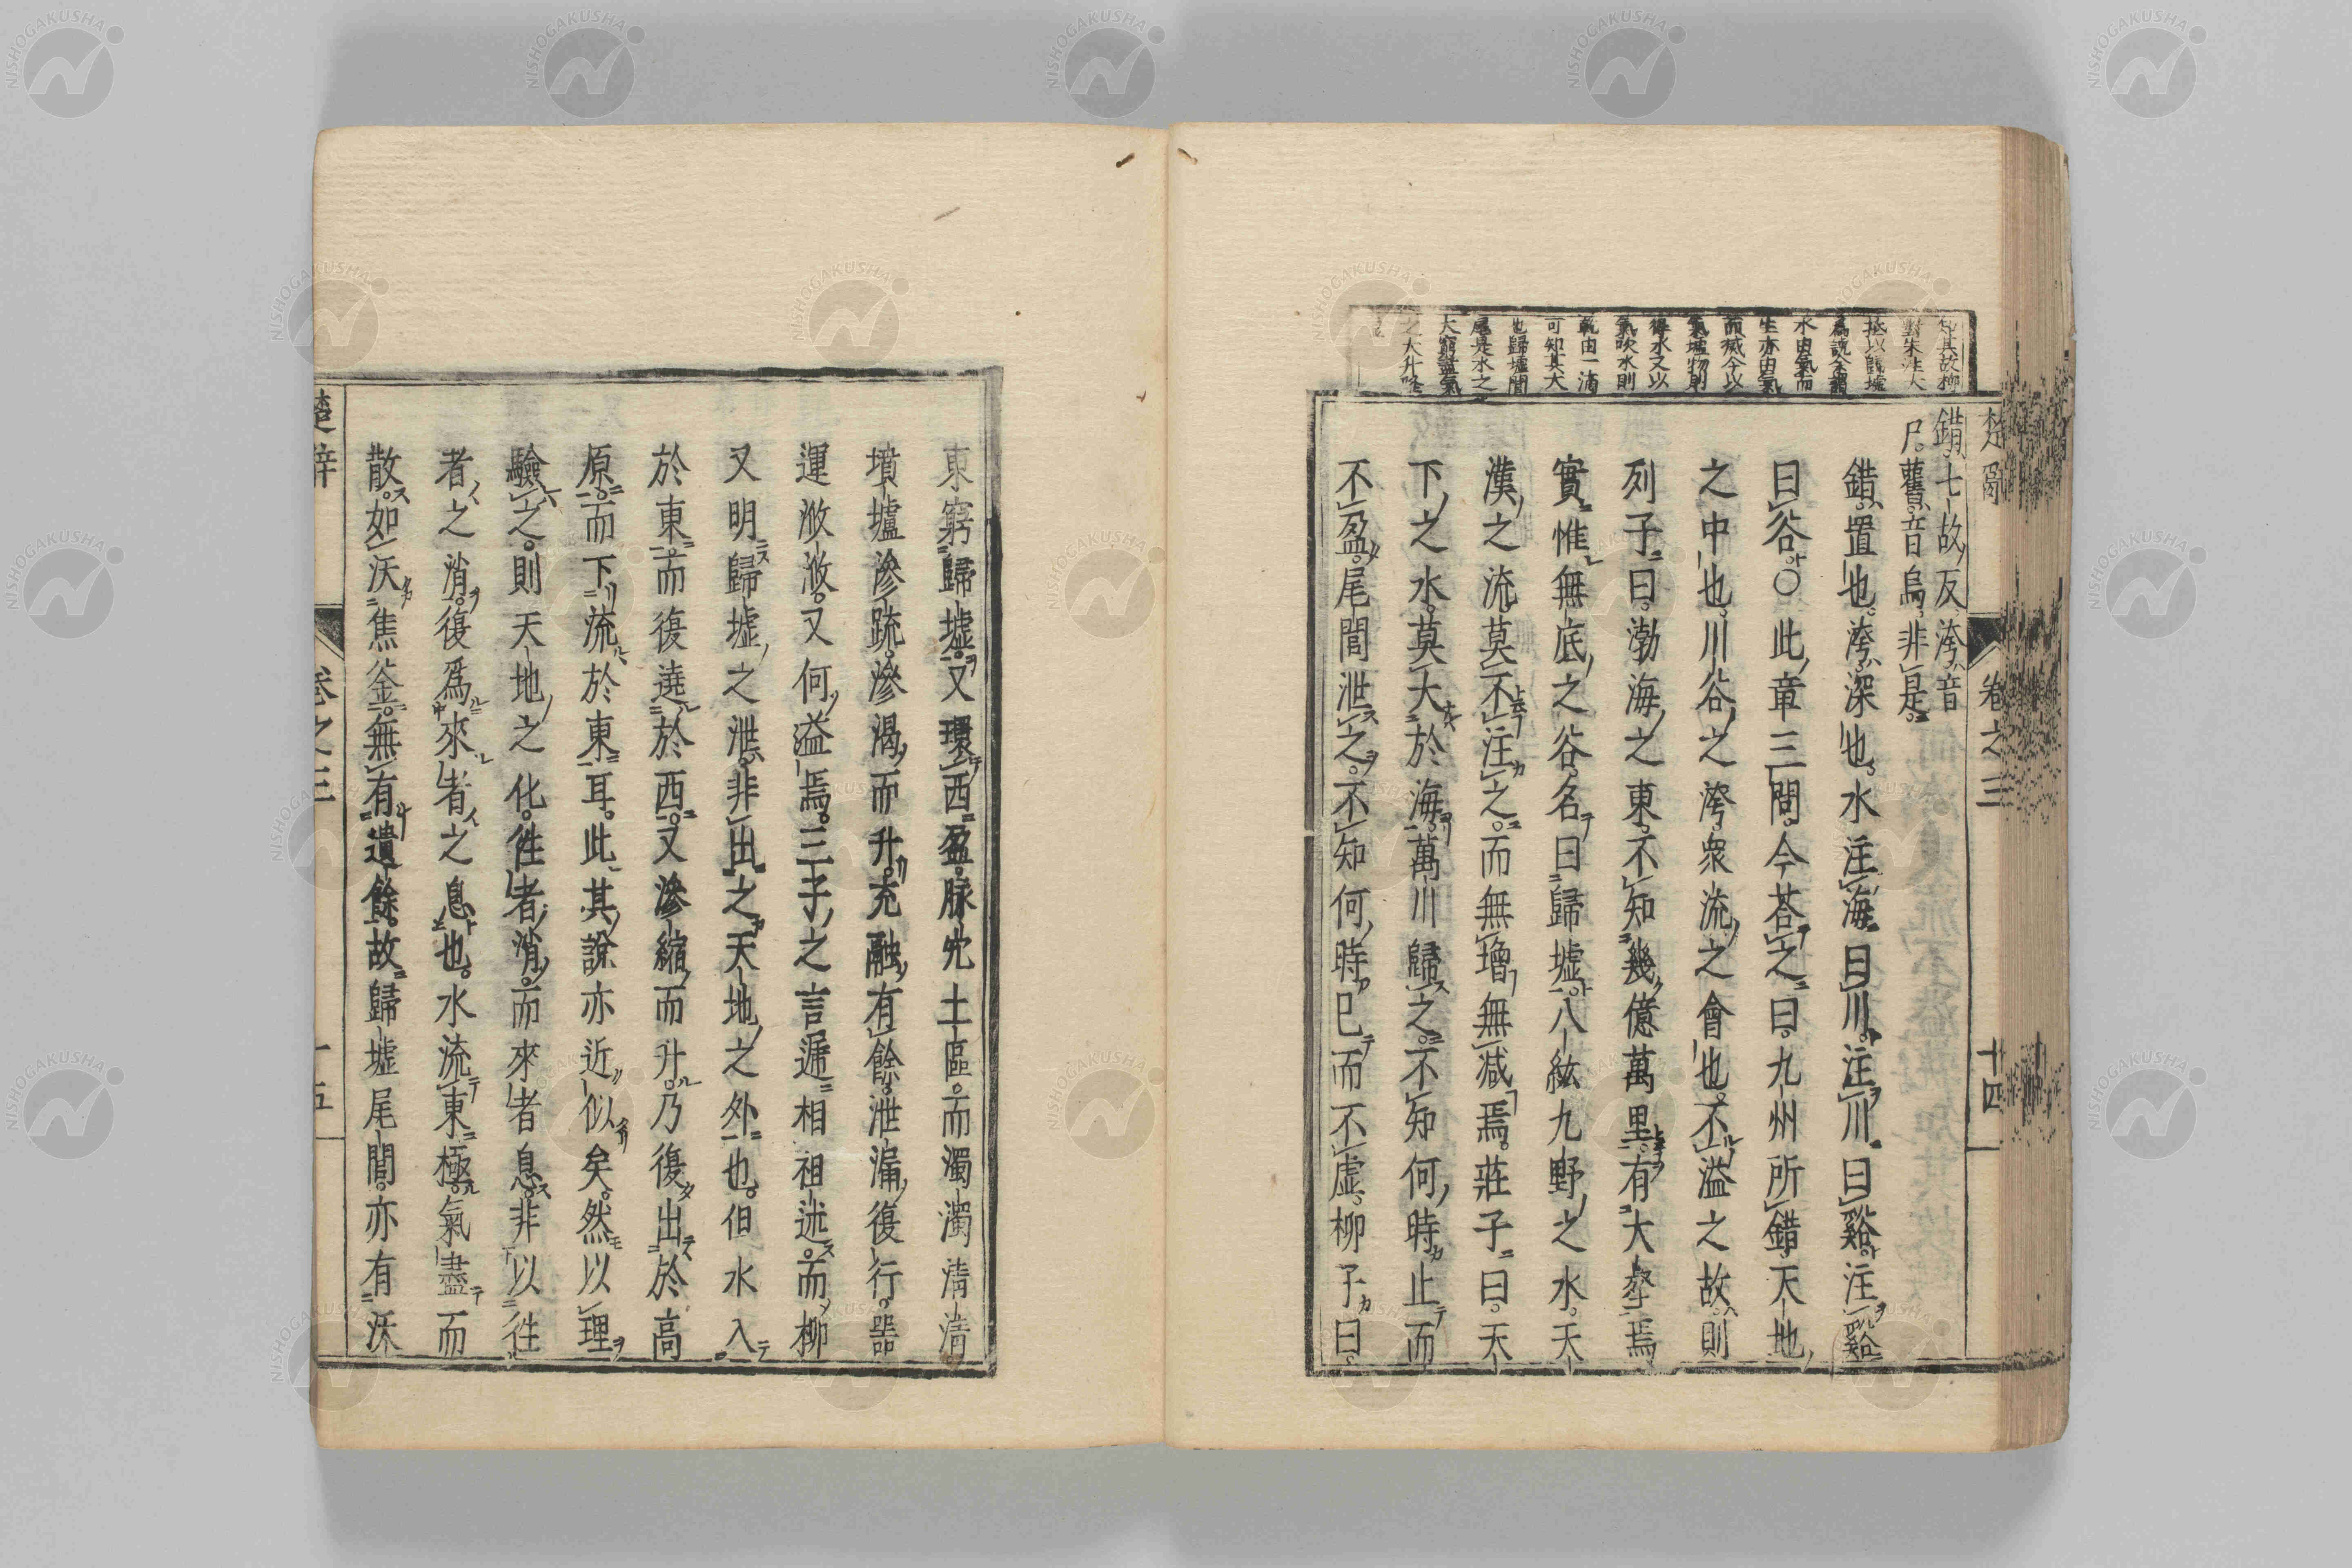 楚辭
卷之三
十四
錯七故反洿音
戶舊音烏非是
錯置也洿深也水注海曰川注川曰谿注谿
曰谷○此章三問今荅之曰九州所錯天地
之中也川谷之洿衆流之會也不溢之故則
列子曰渤海之東不知幾億萬里有大壑焉
實惟無底之谷名曰歸墟八紘九野之水天
漢之流莫不注之而無增無减焉莊子曰天
下之水莫大於海萬川歸之不知何時止而
不盈尾閭泄之不知何時已而不虛柳子曰
對朱注大
拯以歸墟
爲說今謂
水由氣而
生亦由氣
而滅今以
氣墟物則
得水又以
氣吹水則
乾由一滴
可知其大
也歸墟閭
尾是水之
大窮盡氣
之大升降
東窮歸墟又環西盈脉穴土區而濁濁淸淸
墳壚滲疏滲渴而升充融有餘泄漏復行器
運浟浟又何溢焉三子之言遞相祖述而柳
又明歸墟之泄非出之天地之外也但水入
於東而復遶於西又滲縮而升乃復出於高
原而下流於東耳此其說亦近似矣然以理
驗之則天地之化徃者消而來者息非以徃
者之消復爲來者之息也水流東極氣盡而
散如沃焦釜無有遺餘故歸墟尾閭亦有沃
楚辭
卷之三
十五